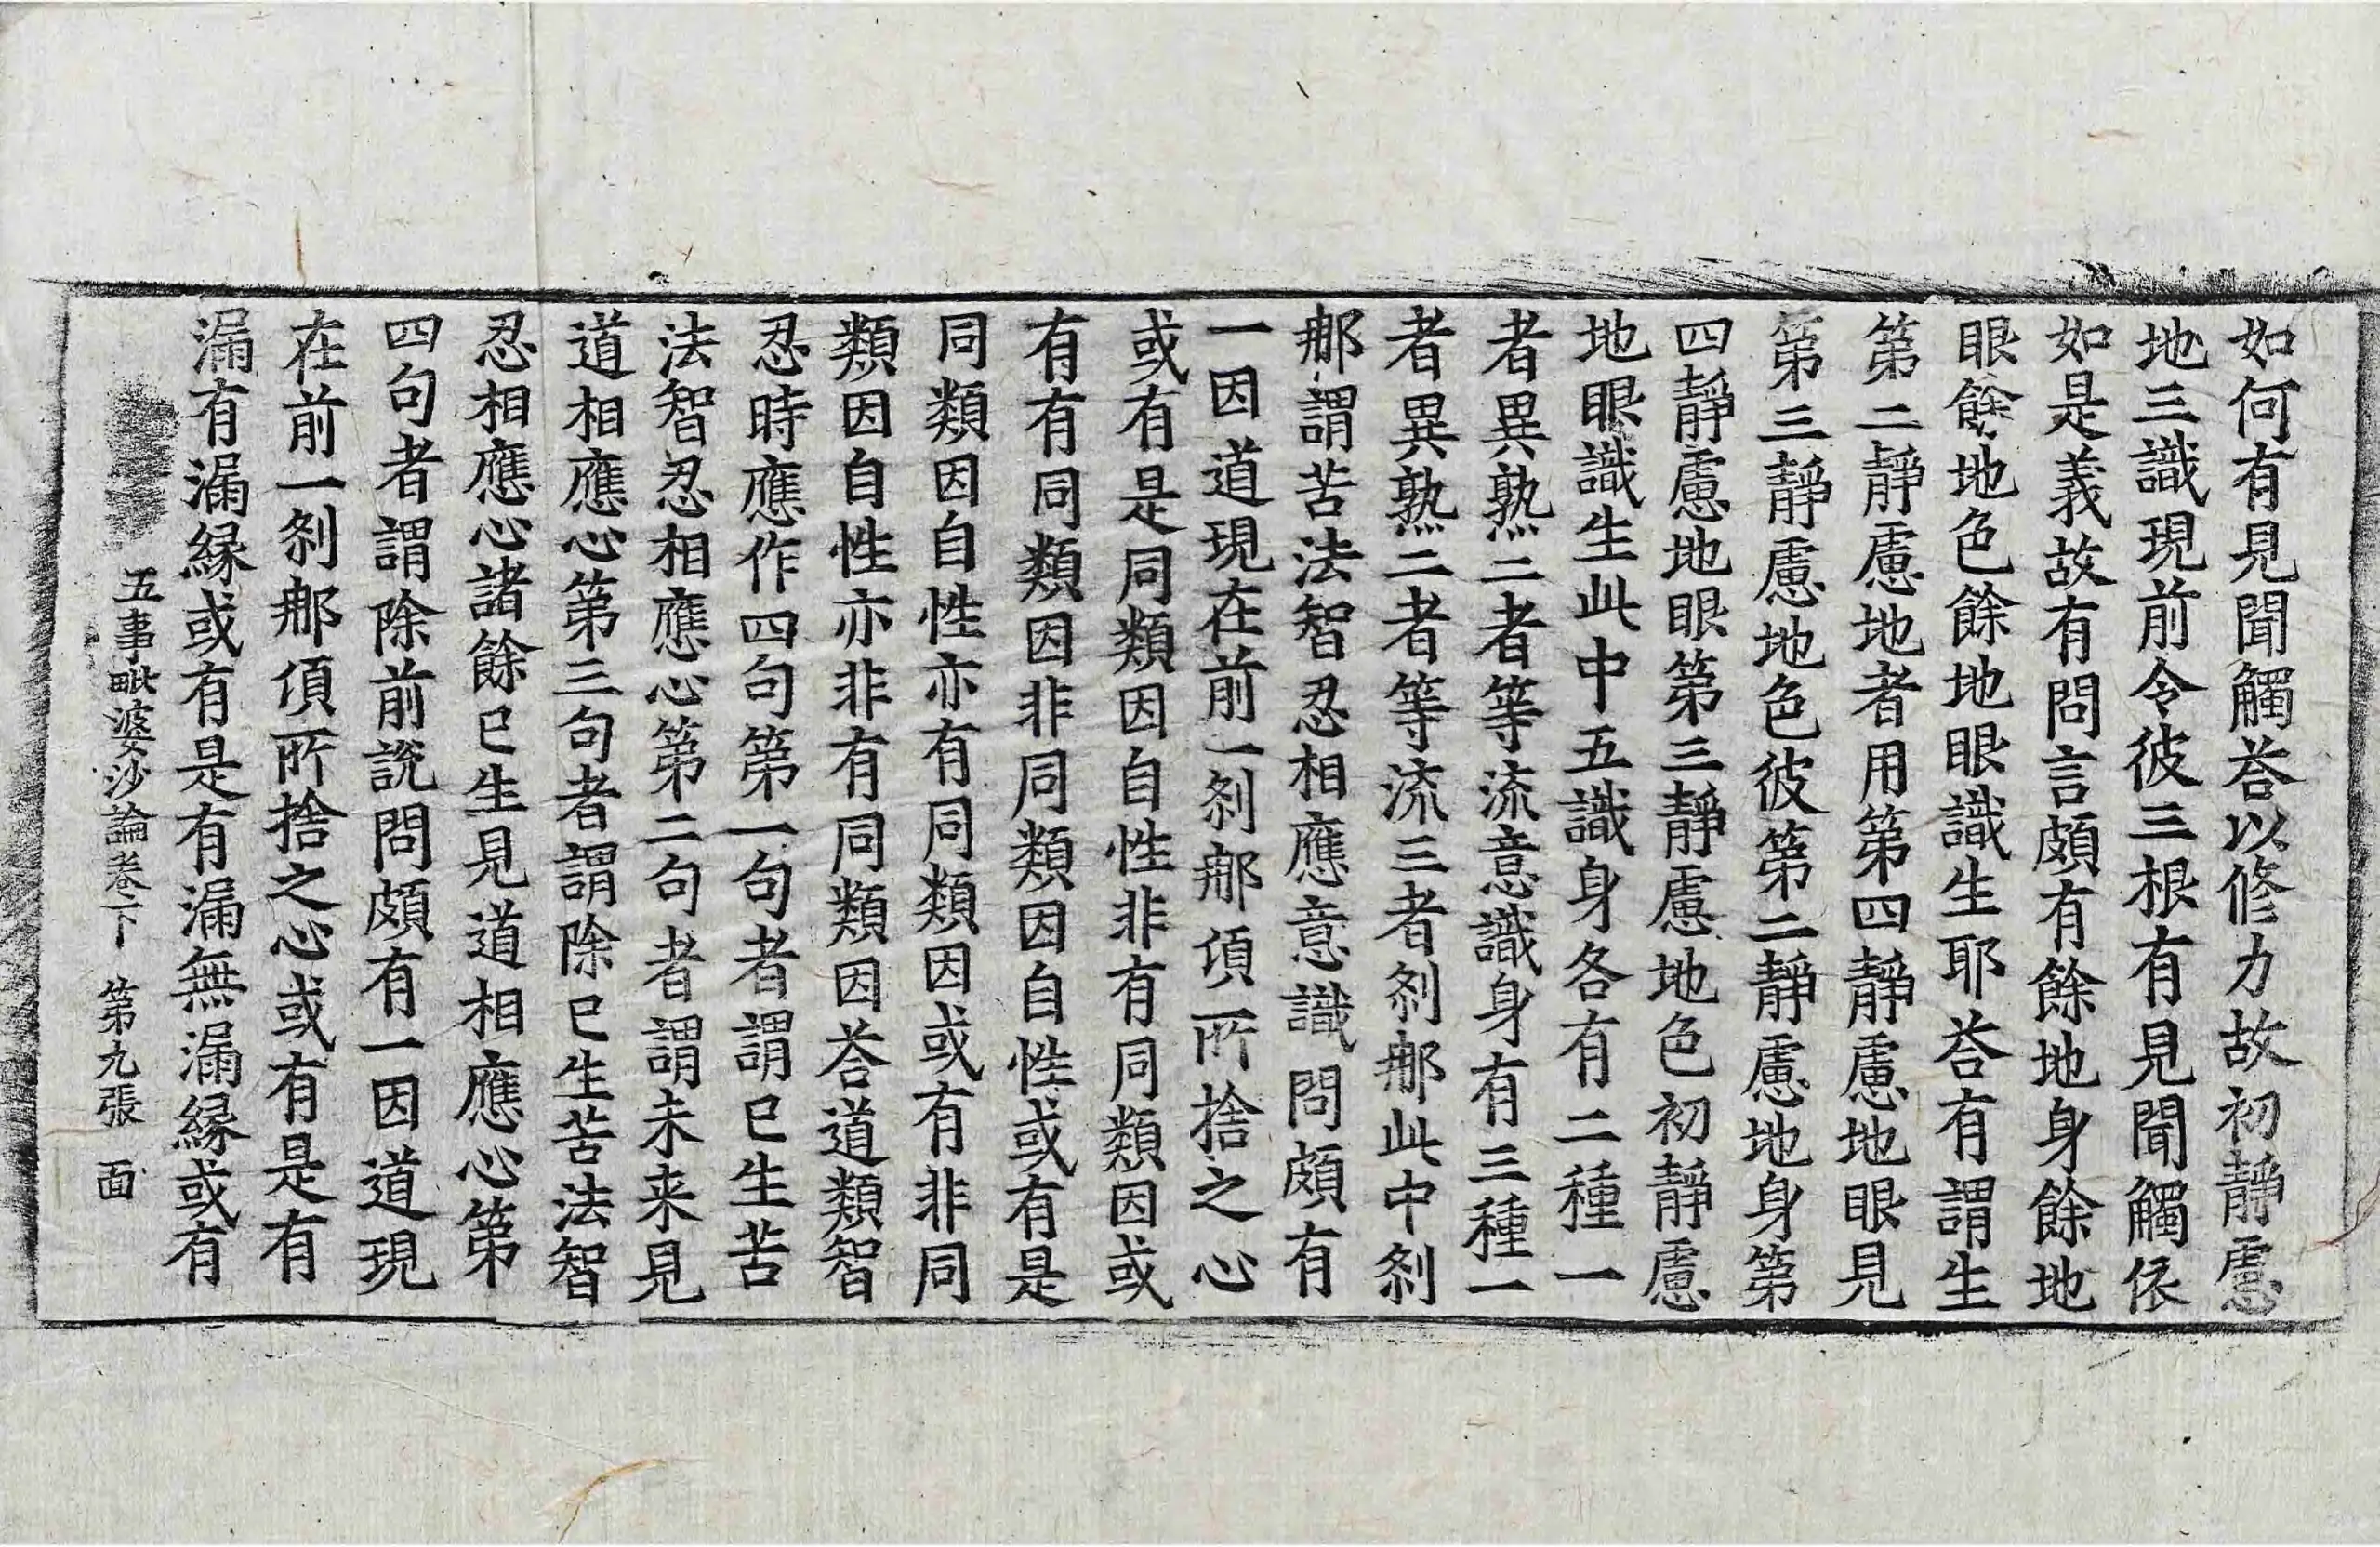 如何有見聞觸荅以修力故初靜慮
地三識現前令彼三根有見聞觸依
如是義故有問言頗有餘地身餘地
眼餘地色餘地眼識生耶荅有謂生
第二靜慮地者用第四靜慮地眼見
第三靜慮地色彼第二靜慮地身第
四靜慮地眼第三靜慮地色初靜慮
地眼識生此中五識身各有二種一
者異熟二者等流意識身有三種一
者異熟二者等流三者剎那此中剎
那謂苦法智忍相應意識問頗有
一因道現在前一剎那頃所捨之心
或有是同類因自性非有同類因或
有有同類因非同類因自性或有是
同類因自性亦有同類因或有非同
類因自性亦非有同類因荅道類智
忍時應作四句第一句者謂已生苦
法智忍相應心第二句者謂未来見
道相應心第三句者謂除已生苦法智
忍相應心諸餘已生見道相應心第
四句者謂除前說問頗有一因道現
在前一剎那頃所捨之心或有是有
漏有漏縁或有是有漏無漏縁或有
五事毗婆沙論卷下 第九張 面